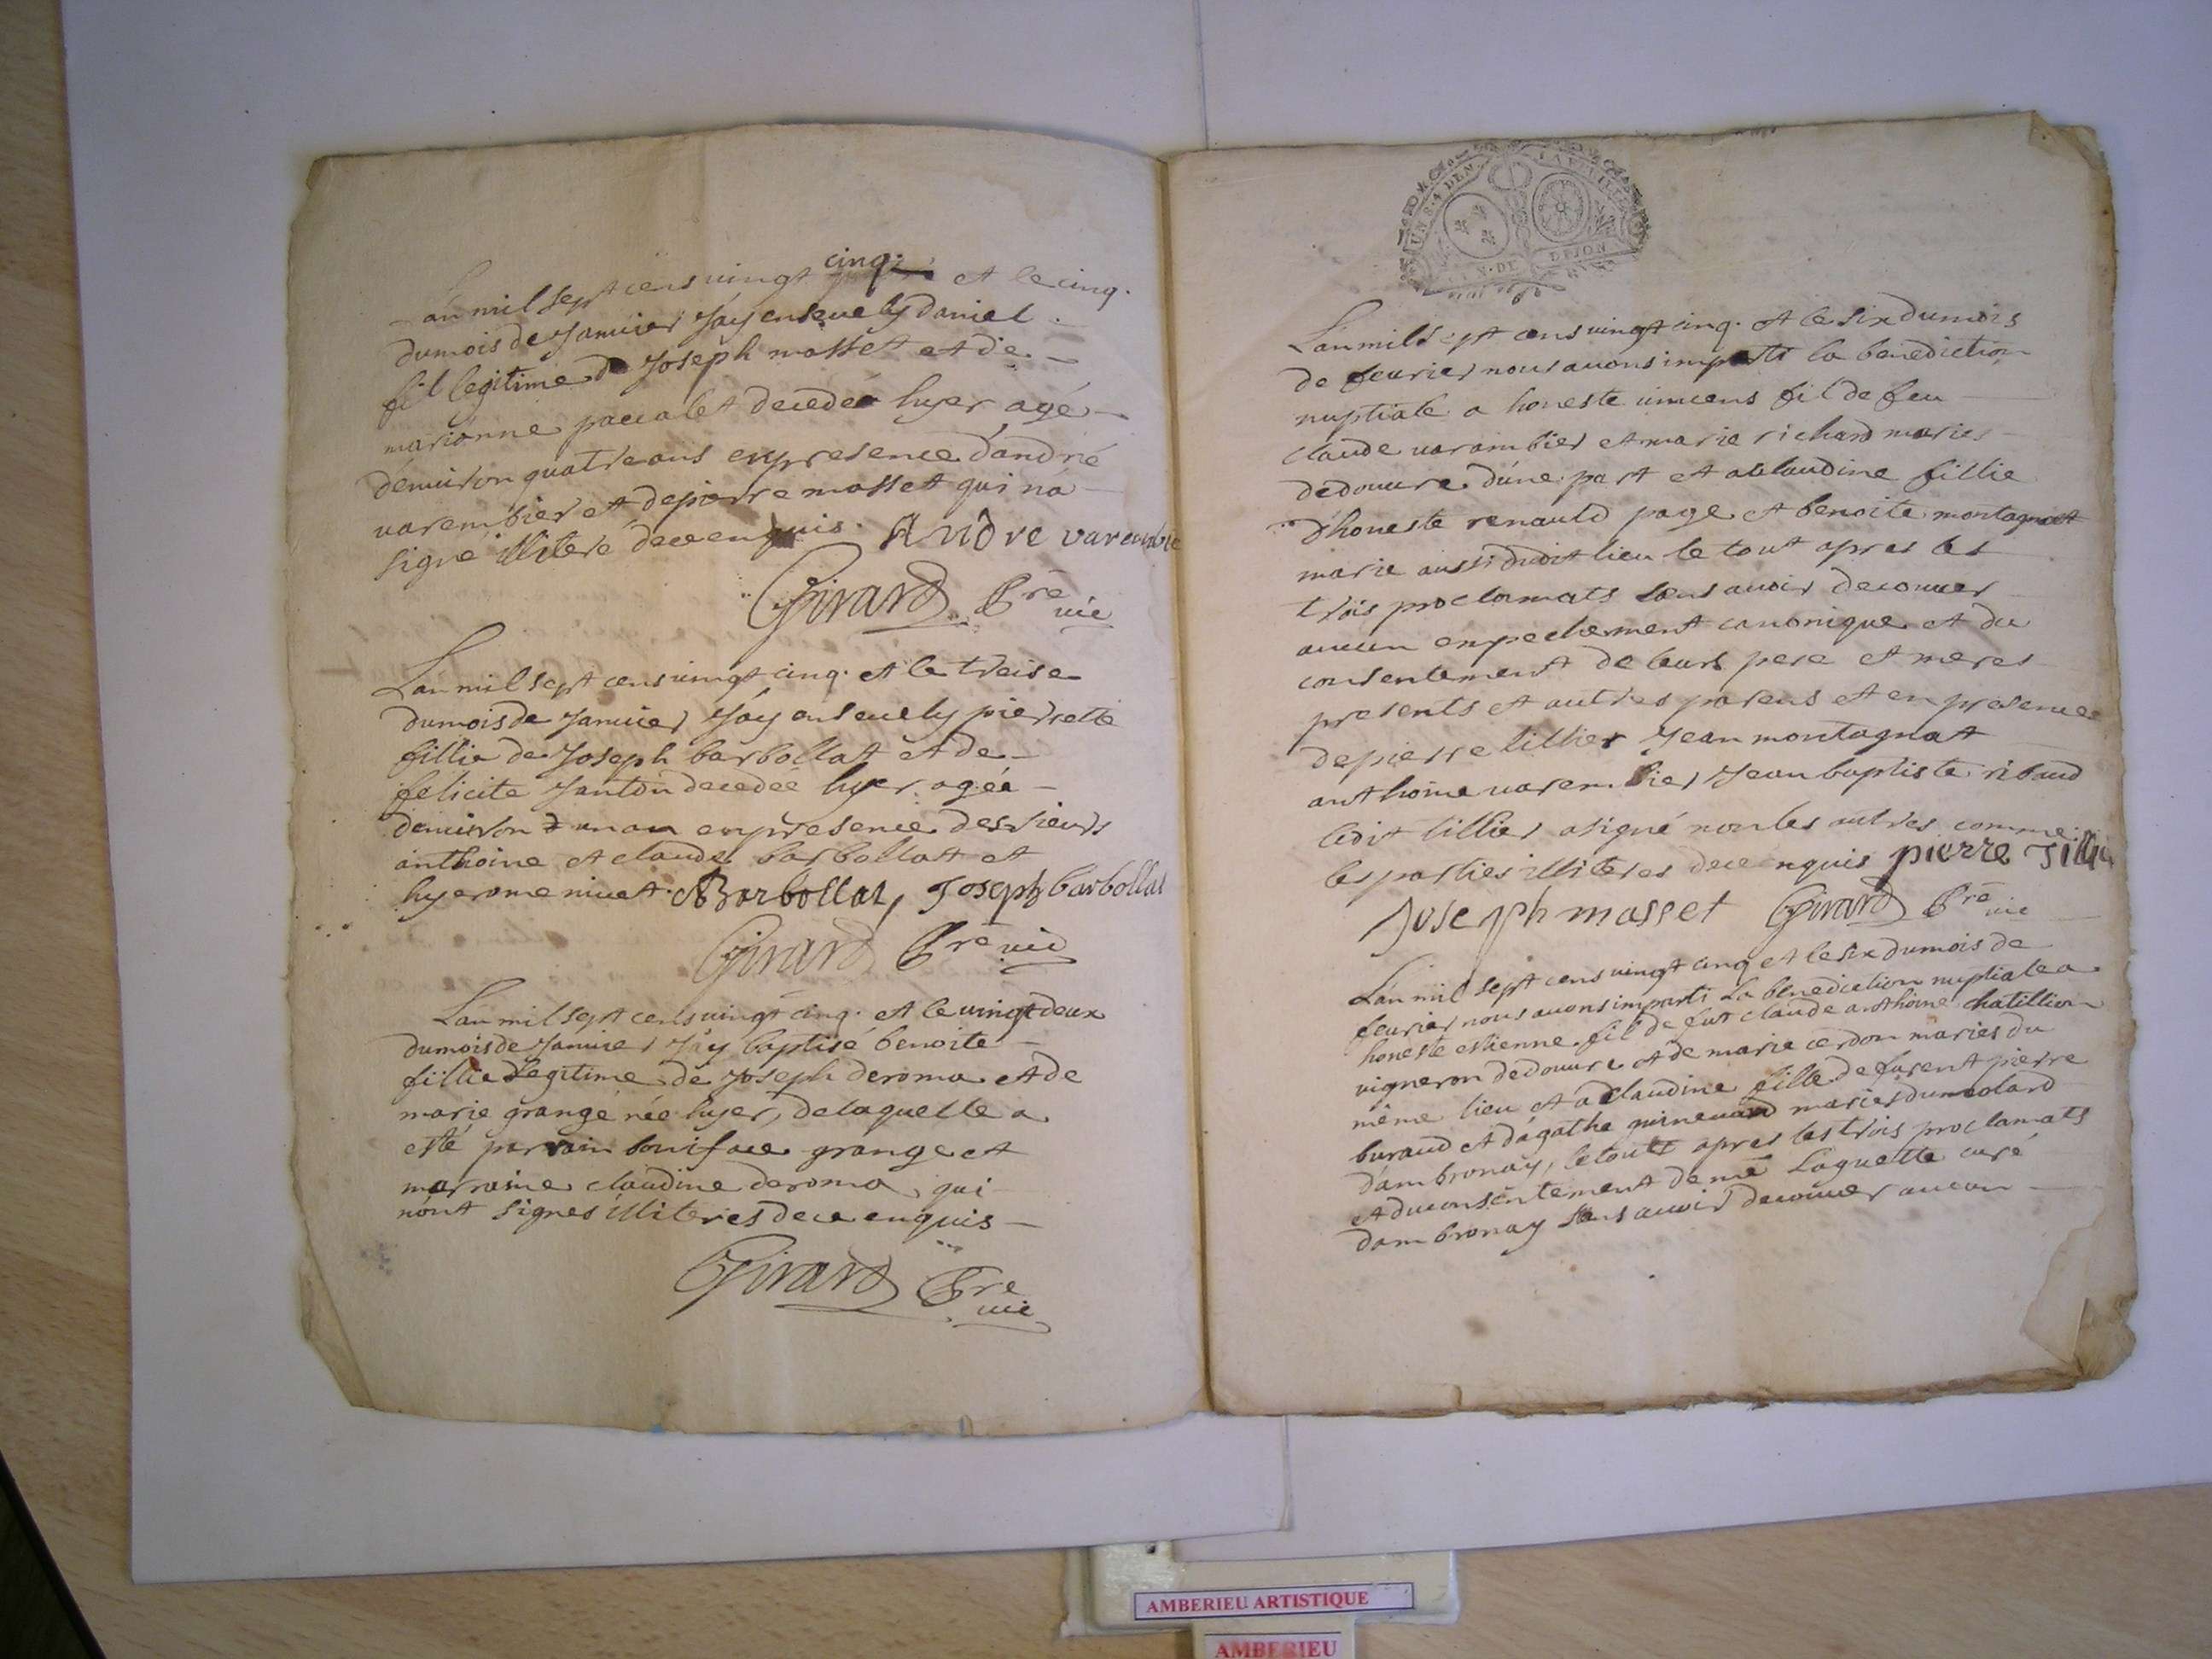 Lan mil sept cens vingt cinq. et le cinq.
du mois de Januier Jáy enseuely daniel
fil legitime de Joseph masset et de
marianne paccalet decedée hyer agé
dénuiron quatre ans en presence dándré
varembier et de pierre masset qui na
signé illiteré de ce enquis. Andre varembie
Girard Pre vic
Lan mil sept cens vingt cinq. et le treise
du mois de Januier Jáy enseuely pierrette
fillie de Joseph barbollat et de
felicite Janton decedée hyer agéé
denuiron un an en presence des sieurs
anthoine et claude barbollat et
hyerome niuet. ABarbollat, Joseph barbollat
Girard Pre vic
Lan mil sept cens vingt cinq. et le vingt deux
du mois de Januier Jáy baptisé benoite
fillie Legitime de Joseph deroma et de
marie grange née hyer, de laquelle a
esté parrain boniface grange et
marraine claudine deroma qui
nónt signés illiteres de ce enquis
Girard Pre vic
UN S. 4 DEN. LA FEUILLE
DE DIJON
Lan mil sept cens vingt cinq. et le six du mois
de feurier nous auons imparti la benediction
nuptiale a honeste vincens fil de feu
claude varambier et marie richard maries
dedouure dúne part et a claudine fillie
dhoneste renauld page et benoite montagnat
marie aussi dudit lieu le tout apres les
trois proclamats sans auoir decouuer
aucun enpechement canonique et du
consentement de leurs pere et meres
presents et autres parens et en presence
de pierre tillier Jean montagnat
anthoine varembier Jean baptiste ribaud
ledit tillier a signé non les autres comme
les parties illiteres de ce enquis pierre Tillier
Joseph masset Girard Pre vic
Lan mil sept cens vingt cinq et le six du mois de
feurier nous auons imparti La benediction nuptiale a
honeste estienne fil de fut claude anthoine chatillion
vigneron dedouure et de marie cerdon maries du
même lieu et a Claudine fille de furent pierre
buraud et dágathe maries du molard
dámbronay, le tout apres les trois proclamats
et du consentement de mre Laguette curé
dambronay sans auoir decouuer aucun
AMBERIEU ARTISTIQUE
AMBERIEU